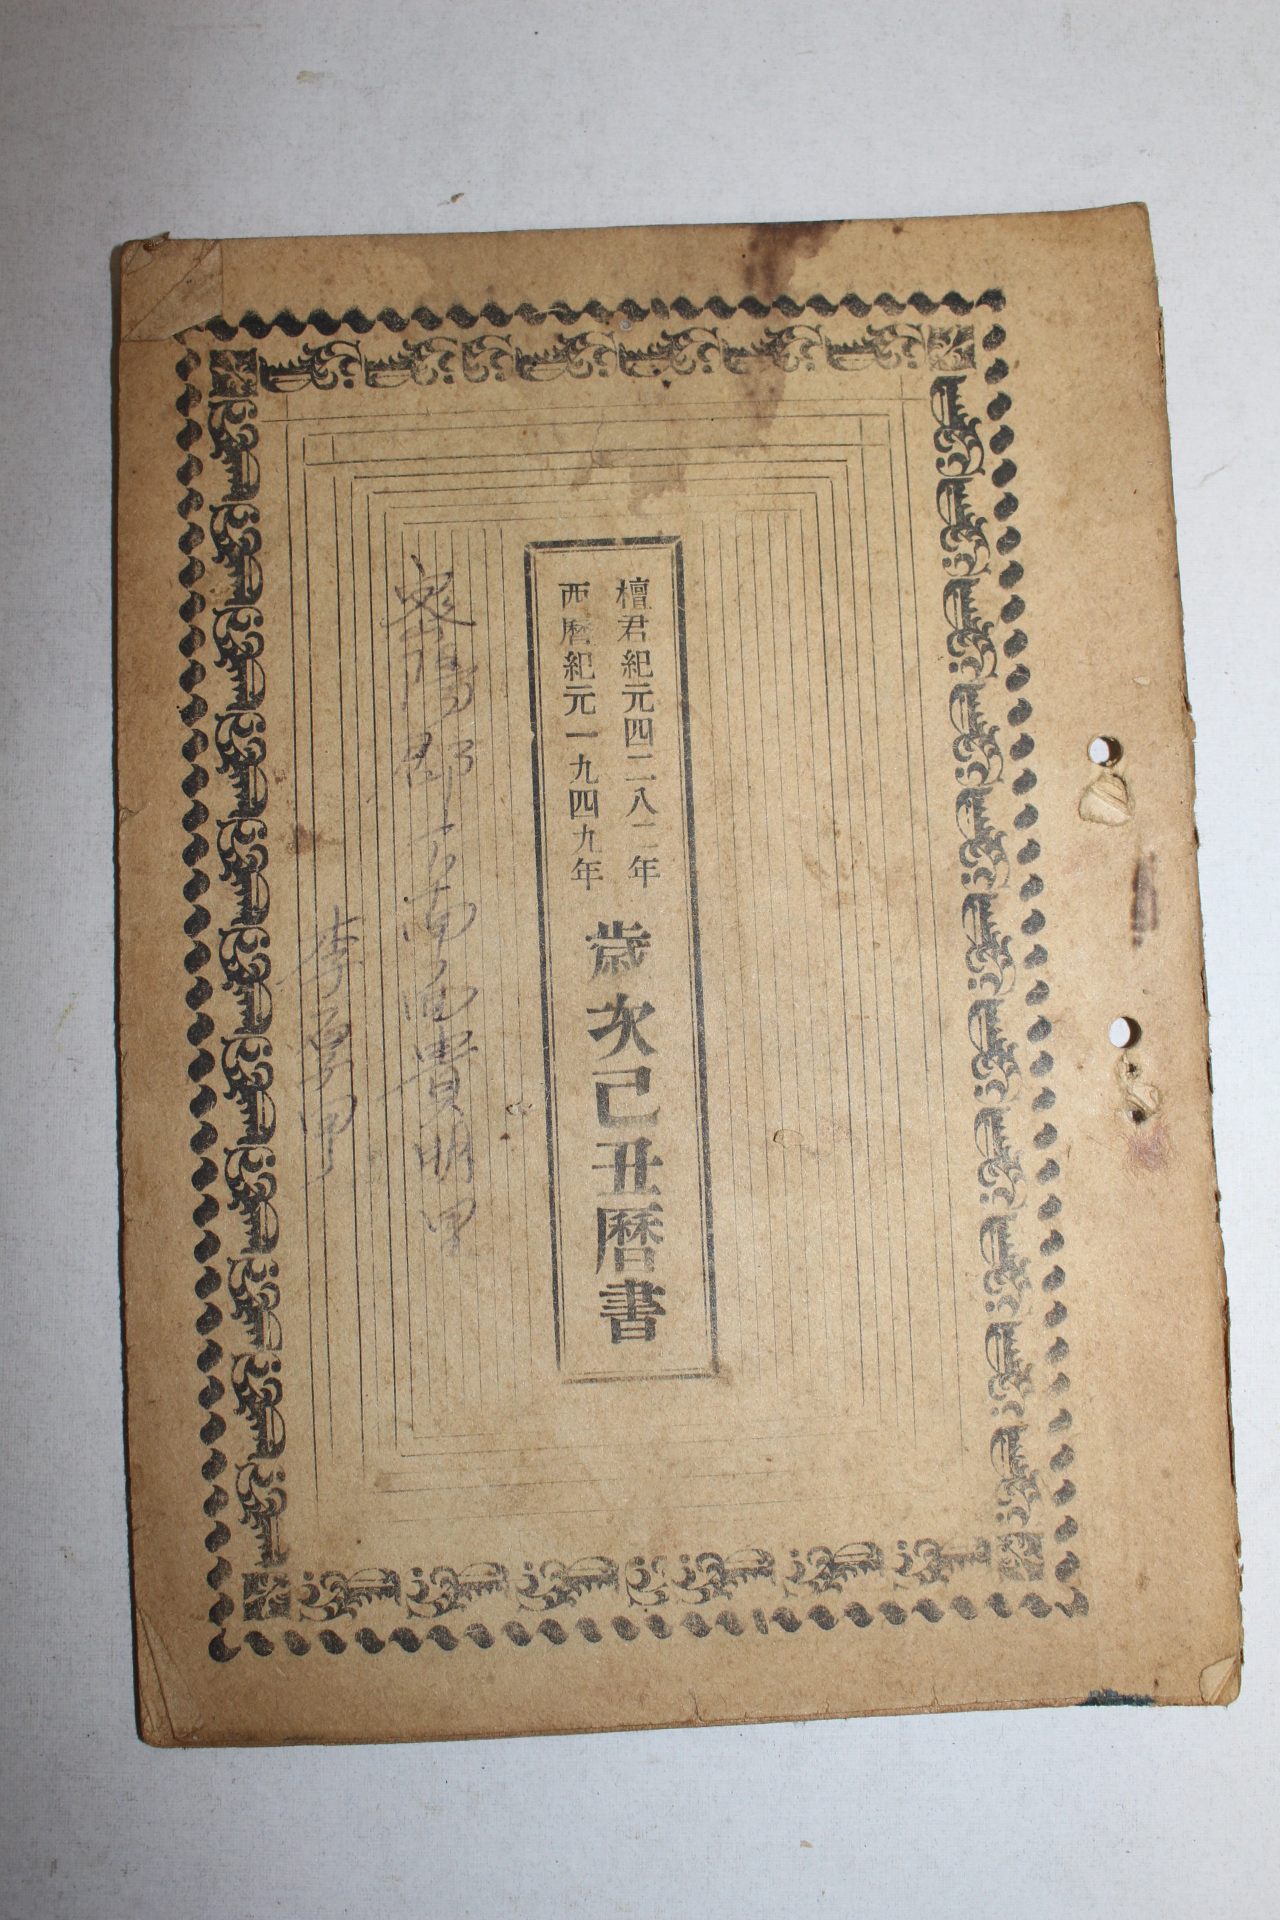 檀君紀元四二八二年
西曆紀元一九四九年
歲次己丑曆書
密陽郡下南面貴明里
李